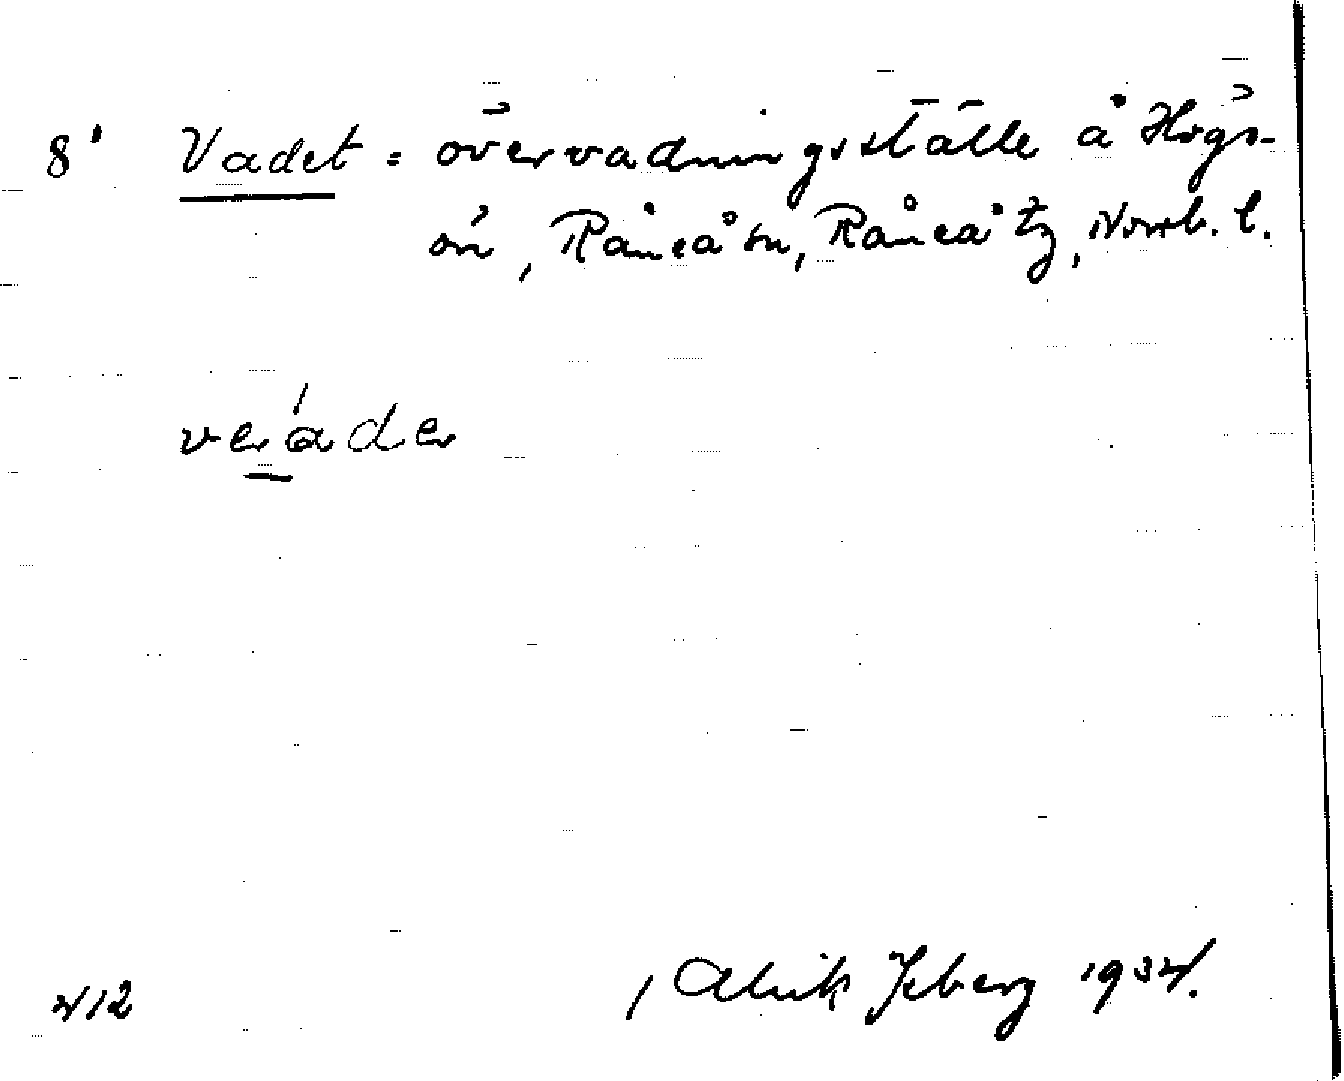 8' Vadet = övervadningsställe å Högs-
ön, Råneå sn, Råneå tg, Norrb. l.
verader
412
, Alrik Isberg 1934.